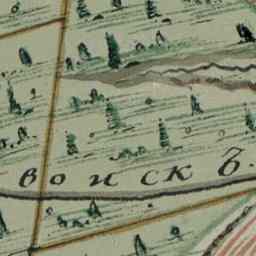 воискъ.